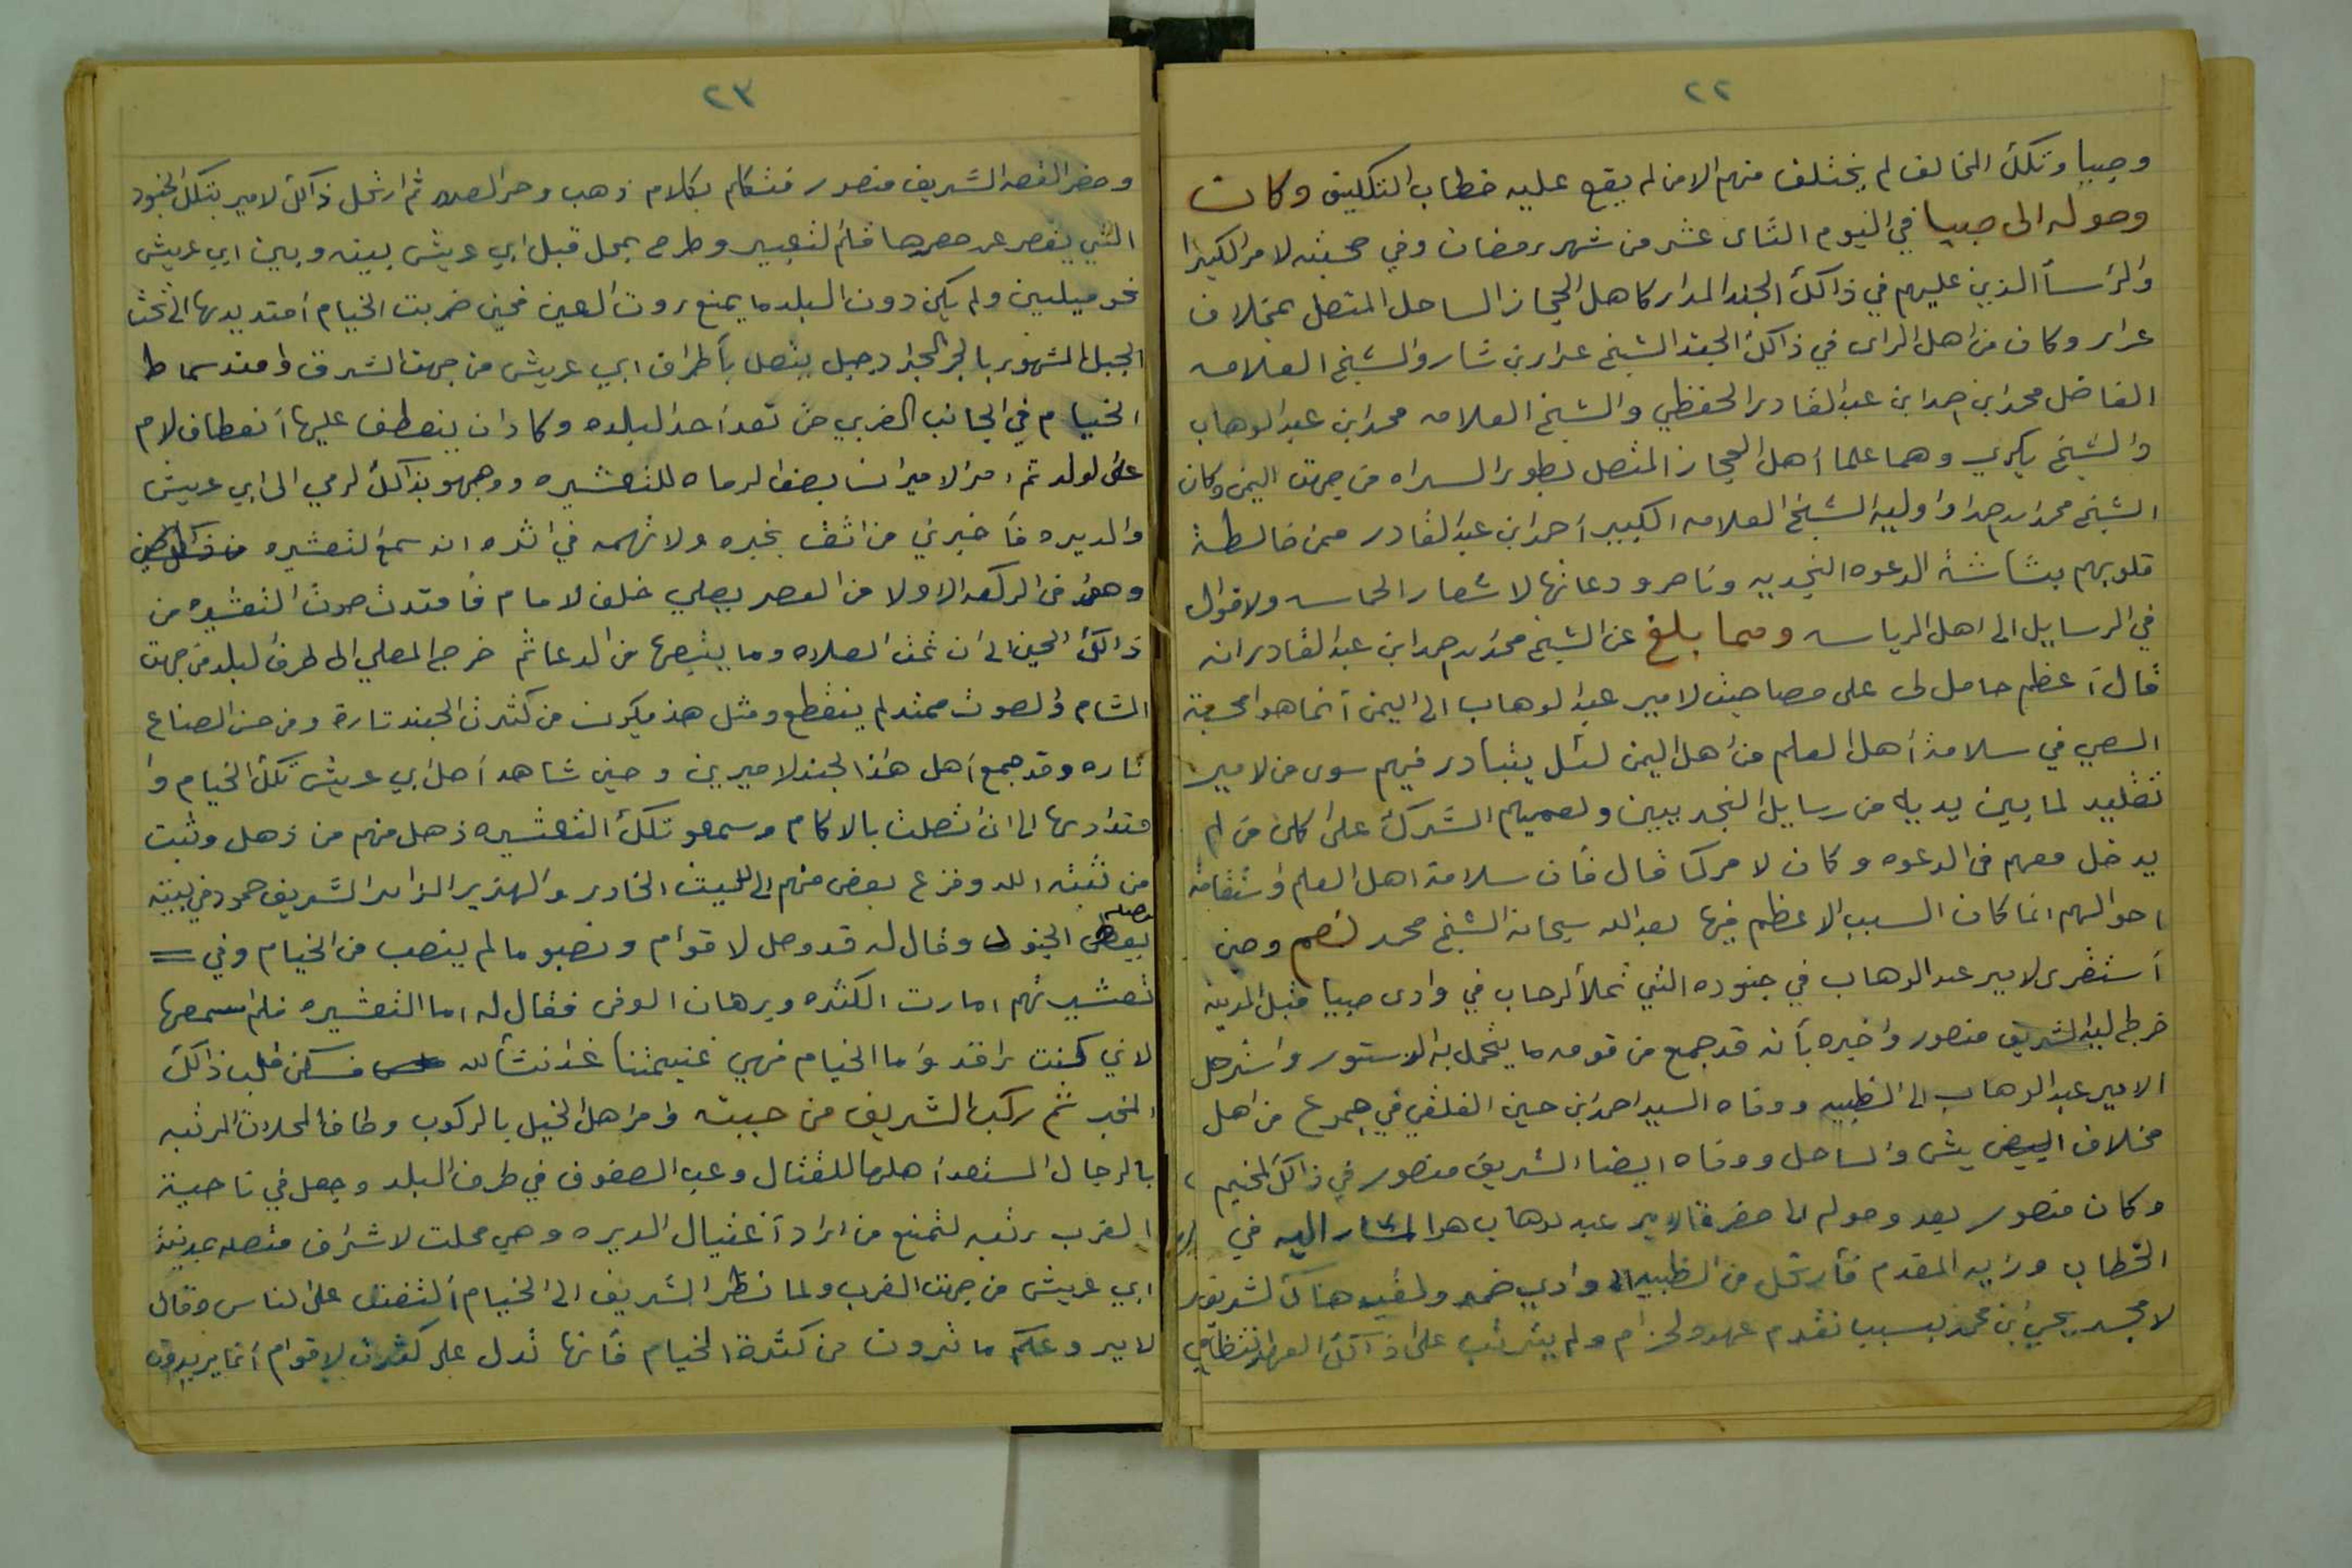 ٢٢
وصبيا وتلكك المخالف لم يختلف منهم الا من لم يقع عليه خطاب التكليف وكان
وصوله الى صبيا في اليوم الثاى عشر من شهر رمضان وفي صحبته لامر الكبيرا
والرأسأ الذين عليهم في ذالكك الجند المدار كاهل الحجاز الساحل المتصل بمخلاف
عرار وكان من اهل الراى في ذالكك الجند الشيخ عرار بن شار والشيخ العلامه
الفاضل محمد ابن احمد ابن عبد القادر الحفظي والشيخ العلامه محمد ابن عبد الوهاب
والشيخ بكري وهما علما أهل الحجاز المتصل بطور السراه من جهت اليمن وكان
الشيخ محمد بن احمد واوليه الشيخ العلامه الكبير أحمد ابن عبد القادر ممن خالطة
قلوبهم بشاشة الدعوه النجديه وناصرو دعاتها لاشعار الحماسه ولاقوال
في الرسايل الى اهل الرياسه ومما بلغ عن الشيخ محمد بن احمد ابن عبد القادر انه
قال أعظم حامل لى على مصاحبت لامير عبد الوهاب الى اليمن أنما هو امحبة
السعي في سلامة أهل العلم من اهل اليمن لئل يتبادر فيهم سوى من لامير
تقليد لما بين يديه من رسايل النجديين وتعميهم الشرك على كلى من لم
يدخل معهم فى الدعوه وكان لامر كما قال فأن سلامة اهل العلم واستقامة
احوالهم انما كان السبب الاعظم فيها بعد الله سبحانه الشيخ محمد نعم وحين
أستقرى لامير عبد الوهاب في جنوده التي تملأ الرحاب في وادى صبيا قبل المدينه
خرج اليه الشريف منصور واخبره بأنه قد جمع من قومه ما يتحمل به الدستور وارتحل
الامير عبد الوهاب الى الظبيه ووفاه السيد احمد ابن حسين الفلقي في جموع من اهل
مخلاف البيض يش والساحل ووفاه ايضا الشريف منصور في ذالكك المخيم
وكان منصور بعد وصوله الى حضرة الامير عبد لوهاب هو المشار اليه في
الخطاب ورايه المقدم فأرتحل من الظبيه الى وادي ضمد ولقيه هناك الشريف
لامجد يحي ابن محمد بسبب تقدم عهد ولزام ولم يترتب على ذالكك العهد انتظامي
٢٣
وحضر القصه الشريف منصور فتكلم بكلام ذهب وحر الصدر ثم ارتحل ذالكك لامير بتلكك الجنود
التي يقصر عن حصرها قلم التعبير وطرح بمحل قبل ابي عريش بينه وبين ابي عريش
نحو ميلين ولم يكن دون البلد ما يمنع روت العين فحين ضربت الخيام أمتد يدها الى تحت
الجبل المشهور بالجر الجبل ارجبل يتصل بأطراف ابي عريش من جهت الشرق وامتد سماط
الخيام في الجانب الغربي حتى تعدأ حد البلده وكاد ان ينعطف عليها أنعطاف لام
على لولد ثم امر الامير انسا بعض الرماه للتعشيره ووجهو بذالكك لرمي الى ابي عريش
والديره فأخبرني من اثق بخبره ولا تهمه في اثره انه سمع التعشيره
وهو فى الركعه الاولا من العصر يصلي خلف لامام فأمتدت صوت التعشيره من
ذالكك الحين الى ان تمت الصلاه وما يتبعها من الدعا ثم خرج المصلي الى طرف البلد من جهت
الشام والصوت ممتد لم ينقطع ومثل هذ يكون من كثرت الجند تارة ومن حسن الصناع
تاره وقد جمع أهل هذا الجند لاميرين وحين شاهد أهل أبي عريش تلكك الخيام وا
متدادها الى ان اتصلت بالاكام وسمعو تلكك التعشيره ذهل منهم من ذهل وثبت
من ثبته الله وفزع بعض منهم الى الليث الخادر والهزبر الزاءر الشريف حمود في بيته
بعض الجنود وقال له قد وصل لاقوام ونصبو ما لم ينصب من الخيام وفي =
تعشيرتهم امارت الكثره وبرهان الوفى فقال له اما التعشيره فلم اسمعها
لاني كنت راقد واما الخيام فهي غنيمتنا غدا نشألله فسكن قلب ذالكك
المخبر ثم ركب الشريف من حينه وامر اهل الخيل بالركوب وطاف المحلات المرتبه
بالرجال المستعد أهلها للقتال وعب الصفوف في طرف البلد وجعل في ناحية
الغرب رتبه لتمنع من اراد أغتيال الديره وهي محلت لاشراف متصله بمدينة
ابي عريش من جهت الغرب ولما نظر الشريف الى الخيام ألتفت على الناس وقال
لا يروعكم ما ترون من كثرة الخيام فأنها تدل على كثرت لاقوام أنما يريدون